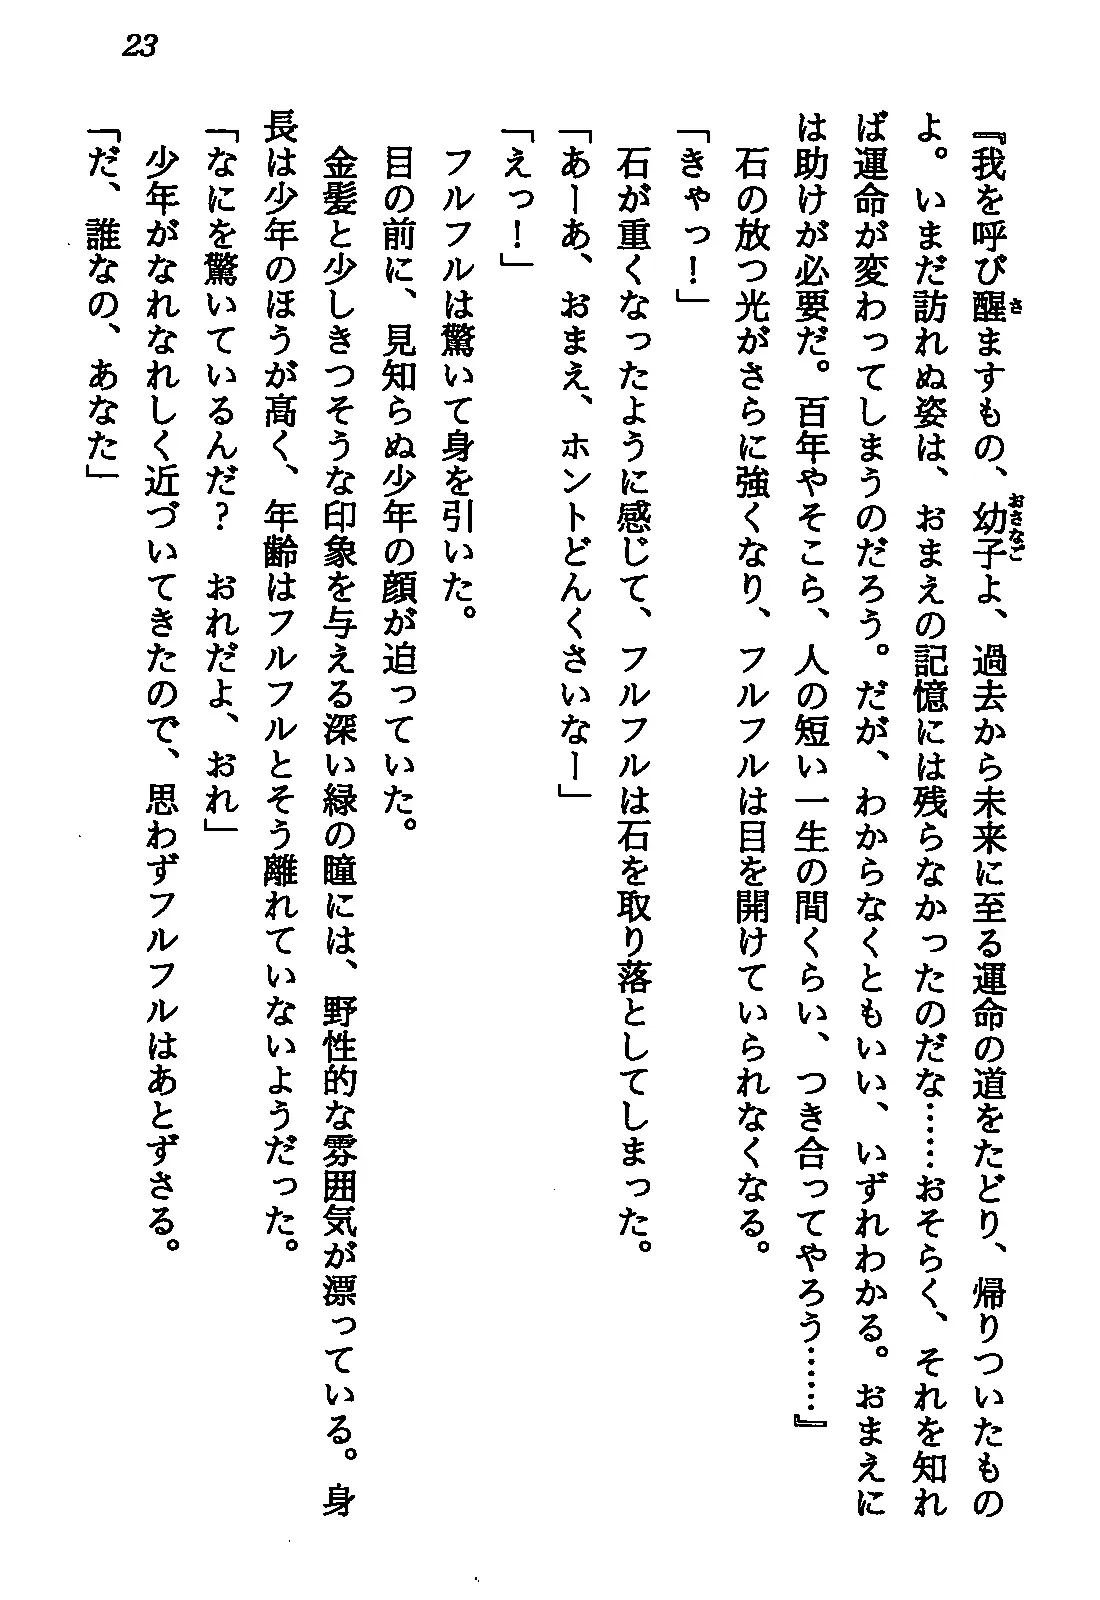 23
『我を呼び醒ますもの、幼子よ、過去から未来に至る運命の道をたどり、帰りついたもの
よ。いまだ訪れぬ姿は、おまえの記憶には残らなかったのだな……おそらく、それを知れ
ば運命が変わってしまうのだろう。だが、わからなくともいい、いずれわかる。おまえに
は助けが必要だ。百年やそこら、人の短い一生の間くらい、つき合ってやろう……』
石の放つ光がさらに強くなり、フルフルは目を開けていられなくなる。
「きゃっ！」
石が重くなったように感じて、フルフルは石を取り落としてしまった。
「あーあ、おまえ、ホントどんくさいなー」
「えっ！」
フルフルは驚いて身を引いた。
目の前に、見知らぬ少年の顔が迫っていた。
金髪と少しきつそうな印象を与える深い緑の瞳には、野性的な雰囲気が漂っている。身
長は少年のほうが高く、年齢はフルフルとそう離れていないようだった。
「なにを驚いているんだ？　おれだよ、おれ」
少年がなれなれしく近づいてきたので、思わずフルフルはあとずさる。
「だ、誰なの、あなた」